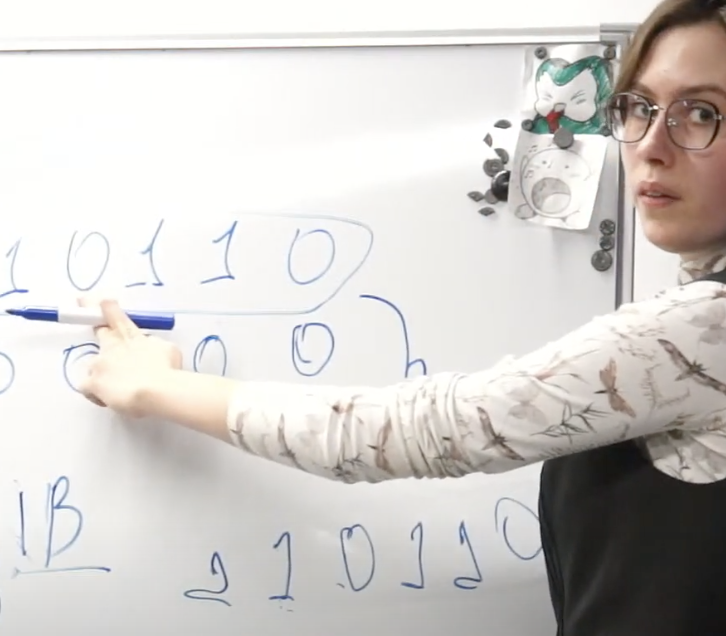 1 0 1 1 0
0 0 0 0
1B
1 1 0 1 1 0